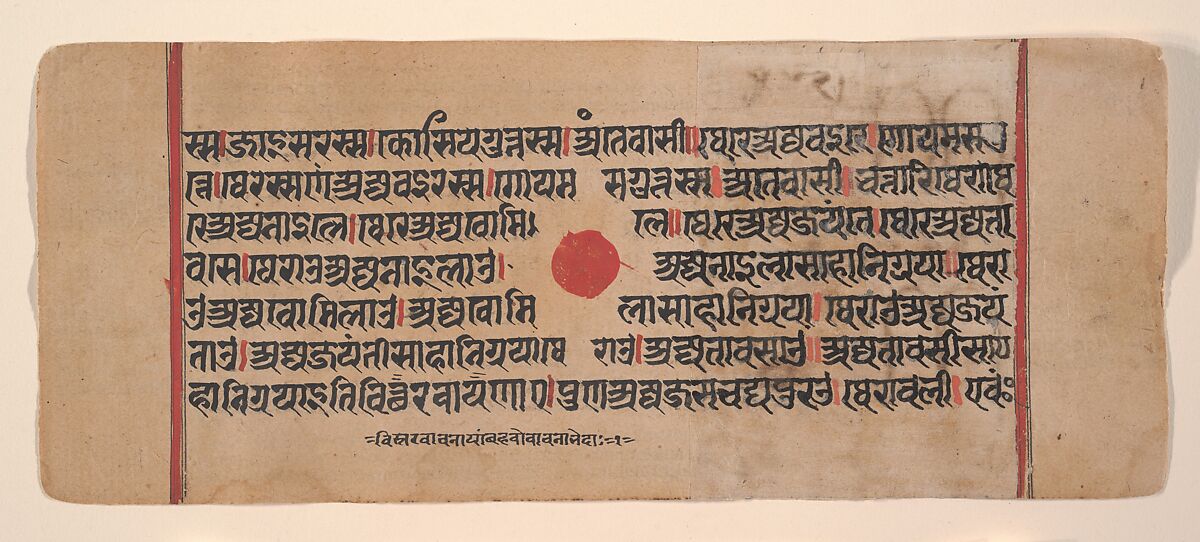 स्स।जाइसरस्स।कोसियगुत्तस्स।अंतेवासी॥थेरेअज्जवइरे।गोयमसगु
त्ते।थेरस्सणंअज्जवइरस्स।गोयम सगुत्तस्स।अंतेवासी।चत्तारिथेराथे
रेअज्जनाइले।थेरेअज्जवोमि। ले॥थेरेअज्जजयंते।थेरेअज्जता
वसे।थेराउअज्जनाइलाउ। अज्जनाइलासाहानिग्गया॥थेरा
उअज्जवोमिलाउ।अज्जवोमि लासाहानिग्गया।थेराउअज्जजयं
ताउ।अज्जजयंतीसाहानिग्गया।थे राउ।अज्जतावसाउ॥अज्जतावसीसा
हानिग्गयाइति वित्थरवायणाए।पुणअज्जजसभद्दपुरउ।थेरावली।एवं
विस्तरवाचनायांबहवोवाचनाभेदाः